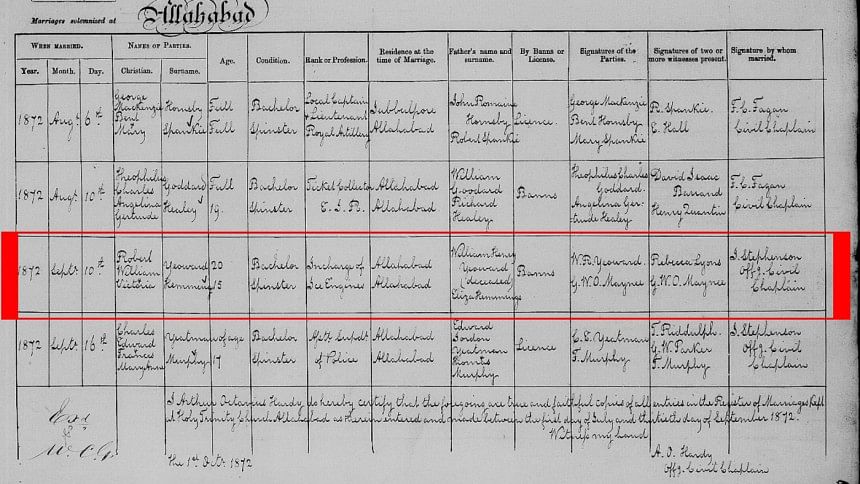 Marriages solemnised at Allahabad
WHEN MARRIED. NAMES OF PARTIES. Age. Condition. Rank or Profession. Residence at the time of Marriage. Father's name and surname. By Banns or License. Signatures of the Parties. Signatures of two or more witnesses present. Signature by whom married.
Year. Month. Day. Christian. Surname.
1872 Augt 6th George Mackenzie Bent Hornsby Full Bachelor Local Captain & Lieutenant Royal Artillery Jubbulpore John Romaine Hornsby Licence George Mackenzie Bent Hornsby R. Spankie F. C. Fagan Civil Chaplain
Mary Spankie Full Spinster Allahabad Robert Spankie Mary Spankie E. Hall
1872 Augt 10th Theophilus Charles Goddard Full Bachelor Ticket Collector E. I. R. Allahabad William Goodard Banns Theophilus Charles Goddard. David Isaac Barrand F. C. Fagan Civil Chaplain
Angelina Gertrude Healey 19. Spinster Allahabad Richard Healey. Angelina Gertrude Healey Henry Quantin
1872 Septr 10th Robert William Yeoward 20 Bachelor Incharge of Ice Engines Allahabad William Henry Yeoward (deceased) Banns W. R. Yeoward Rebecca Lyons J. Stephenson Offg. Civil Chaplain
Victoria Hemmings 15 Spinster Allahabad Eliza Hemmings G. W. O. Maynee G. W. O. Maynee
1872 Septr 16th Charles Edward Yeatman of age Bachelor Asstt Supdt of Police Allahabad Edward Gordon Yeatman Licence C. E. Yeatman F. Riddulph. G. W. Parker J. Stephenson Offg. Civil Chaplain
Frances Mary Anne Murphy 17 Spinster Allahabad Thomas Murphy F. Murphy. F. Murphy
I Arthur Octavius Hardy do hereby certify that the foregoing are true and faithful copies of all entries in the Register of Marriages kept
at Holy Trinity Church Allahabad as therein entered and made between the first day of July and the thirtieth day of September 1872.
Witness my hand
Exd
A. O. Hardy
The 1st Octr 1872 Offg. Civil Chaplain